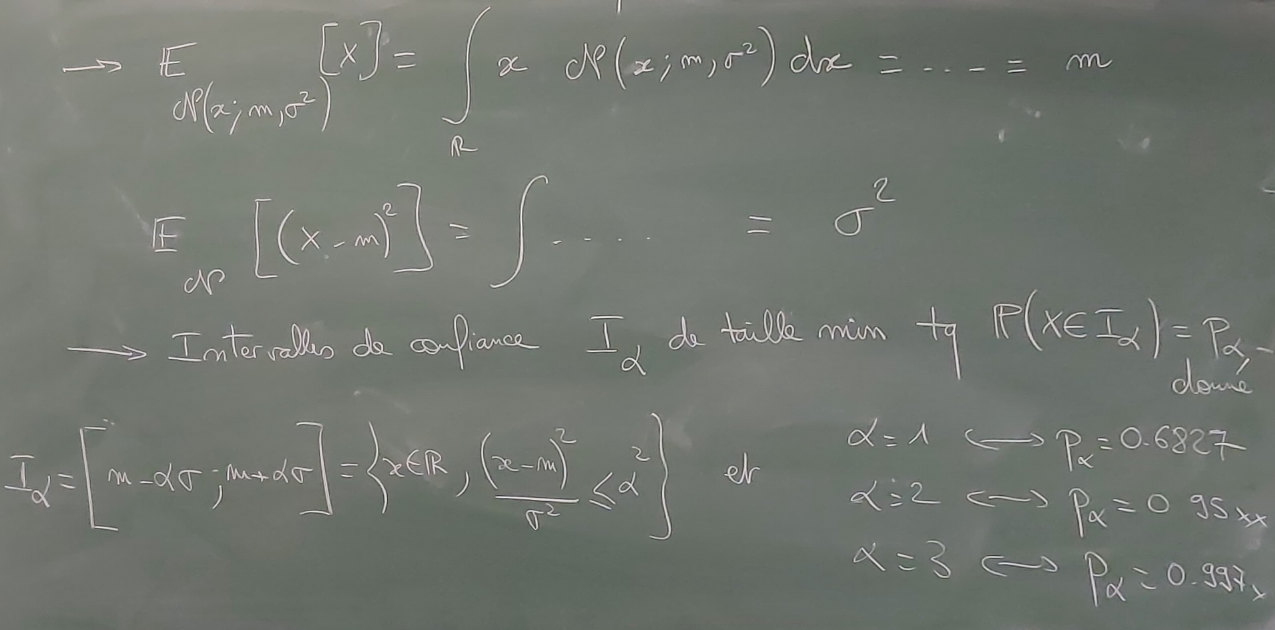 → 𝔼_{𝒩(x; m, σ²)} [X] = ∫_ℝ x 𝒩(x; m, σ²) dx = .... = m
𝔼_𝒩 [(X - m)²] = ∫ .... = σ²
→ Intervalles de confiance I_α de taille min tq ℙ(X ∈ I_α) = P_α, donné
I_α = [m - ασ ; m + ασ] = {x ∈ ℝ, (x - m)²/σ² ≤ α²} et
α = 1 ⟷ p_α = 0.6827
α = 2 ⟷ p_α = 0 95xx
α = 3 ⟷ p_α = 0.997x